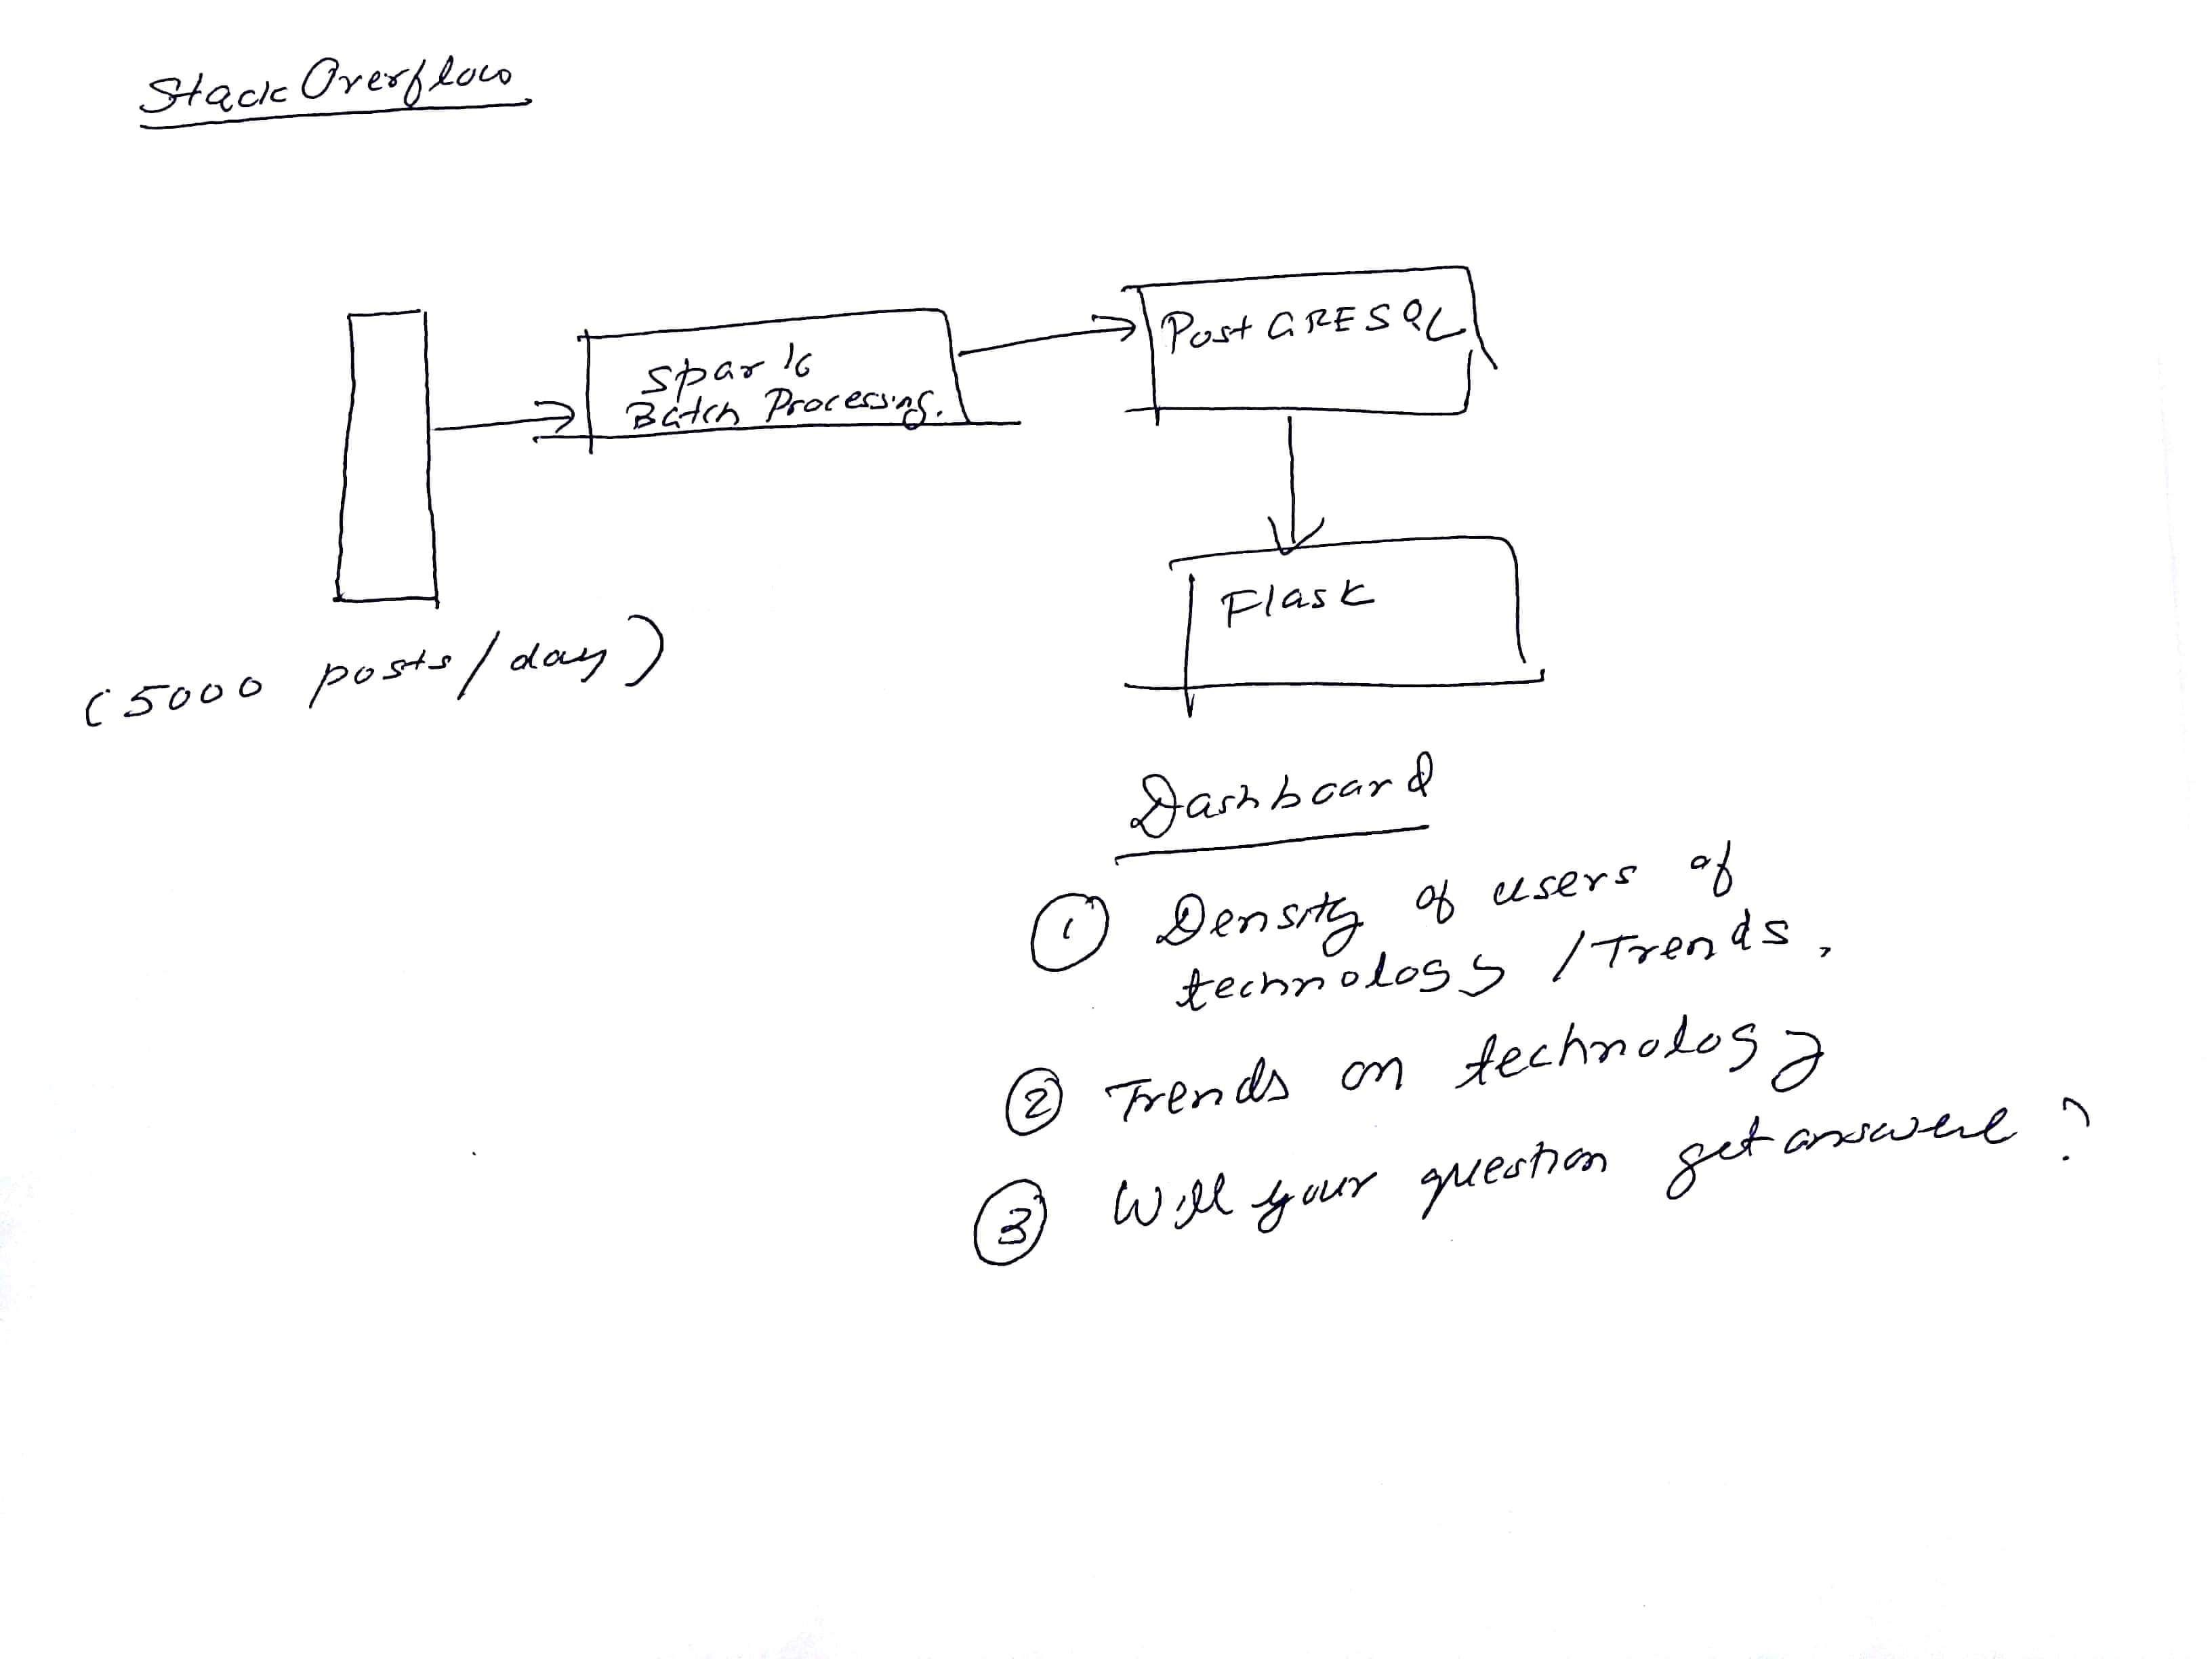 Stack Overflow
Spark
Batch Processing.
PostGRESQL
Flask
(5000 posts/day)
Dashboard
① Density of users of
technology / Trends,
② Trends on technology
③ Will your question get answere ?